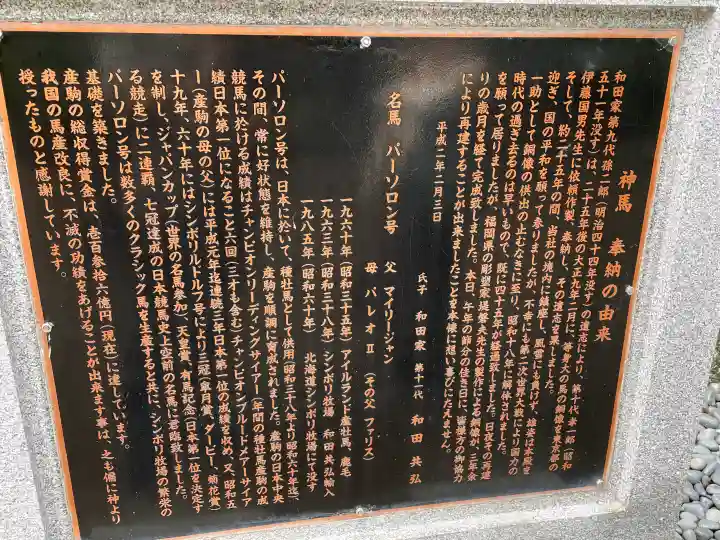 神馬 奉納の由来
和田家第九代孫一郎(明治四十四年没す)の遺志により、第十代孝一郎(昭和
五十一年没す)は、二十五年後の大正九年二月に、等身大の馬の銅像を東京都の
伊藤国男先生に依頼作製、奉納し、その遺志を果しました。
そして、約二十五年の間、当社の境内に鎮座し、風雪にも負けず、雄姿は本殿を
迎ぎ、国の平和を願って参りましたが、不幸にも第二次世界大戦により国力の
一助として銅像の供出の止むなきに至り、昭和十八年に解体されました。
時代の過ぎ去るのは早いもので、既に四十五年が経過致しました。日夜その再建
を願って居りましたが、福岡県の彫塑家 先生の製作による銅像が、三年余
りの歳月を経て完成致しました。本日、午年の節分の佳き日に、皆様方の御協力
により再建することが出来ましたことを本様に想い喜びにたえません。
平成二年二月三日
氏子 和田家 第十一代 和田共弘
名馬 パーソロン号 父 マイリージャン
母 パレオⅡ (その父 ファリス)
一九六十年(昭和三十五年)アイルランド産牡馬、鹿毛
一九六三年(昭和三十八年)シンボリ牧場 和田共弘輸入
一九八五年(昭和六十年) 北海道シンボリ牧場にて没す
パーソロン号は、日本に於いて、種牡馬として供用(昭和三十八年より昭和六十年迄)、
その間、常に好状態を維持し、産駒を順調に育成されました。産駒の日本中央
競馬に於ける成績はチャンピオンリーディングサイアー(年間の種牡馬産駒の成
績日本第一位になること)六回(三才も含む)チャンピオンブルードメアーサイア
ー(産駒の母の父)には平成元年迄連続三年日本第一位の成績を収め、又、昭和五
十九年、六十年にはシンボリルドルフ号により三冠(皐月賞、ダービー、菊花賞)
を制し、ジャパンカップ(世界の名馬参加)、天皇賞、有馬記念(日本第一位を決定す
る競走)に二連覇、七冠達成の日本競馬史上空前の名馬に君臨致しました。
パーソロン号は数多くのクラシック馬を生産すると共に、シンボリ牧場の繁栄の
基礎を築きました。
産駒の総収得賞金は、壱百参拾六億円(現在)に達しています。
我国の馬産改良に、不滅の功績をあげることが出来ます事は、之も偏に神より
授ったものと感謝しています。